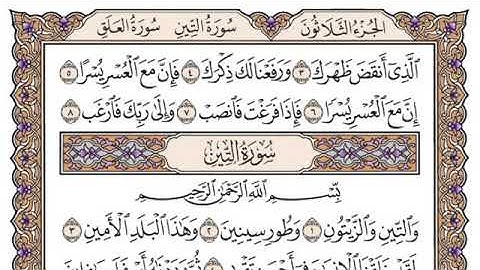 الجزء الثلاثون سورة التين سورة العلق
ٱلَّذِىٓ أَنقَضَ ظَهْرَكَ ٣ وَرَفَعْنَا لَكَ ذِكْرَكَ ٤ فَإِنَّ مَعَ ٱلْعُسْرِ يُسْرًا ٥
إِنَّ مَعَ ٱلْعُسْرِ يُسْرًا ٦ فَإِذَا فَرَغْتَ فَٱنصَبْ ٧ وَإِلَىٰ رَبِّكَ فَٱرْغَب ٨
سُورَةُ التِّينِ
بِسْمِ ٱللَّهِ ٱلرَّحْمَٰنِ ٱلرَّحِيمِ
وَٱلتِّينِ وَٱلزَّيْتُونِ ١ وَطُورِ سِينِينَ ٢ وَهَٰذَا ٱلْبَلَدِ ٱلْأَمِينِ ٣